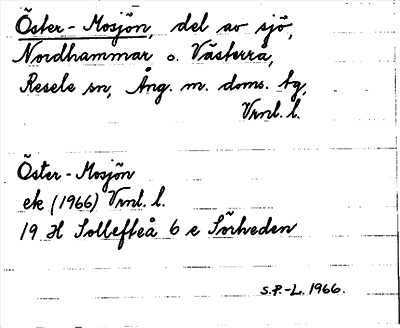 Öster-Mosjön, del av sjö,
Nordhammar o. Västerrå,
Resele sn, Ång. m. doms. tg,
Vrnl. l.
Öster-Mosjön
ek (1966) Vrnl. l.
19 H Sollefteå 6 e Sörheden
S.P.-L. 1966.